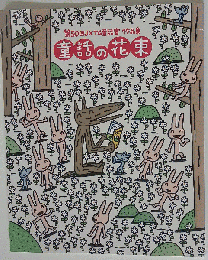 第50回JXTG童話賞作品集
童話の花束